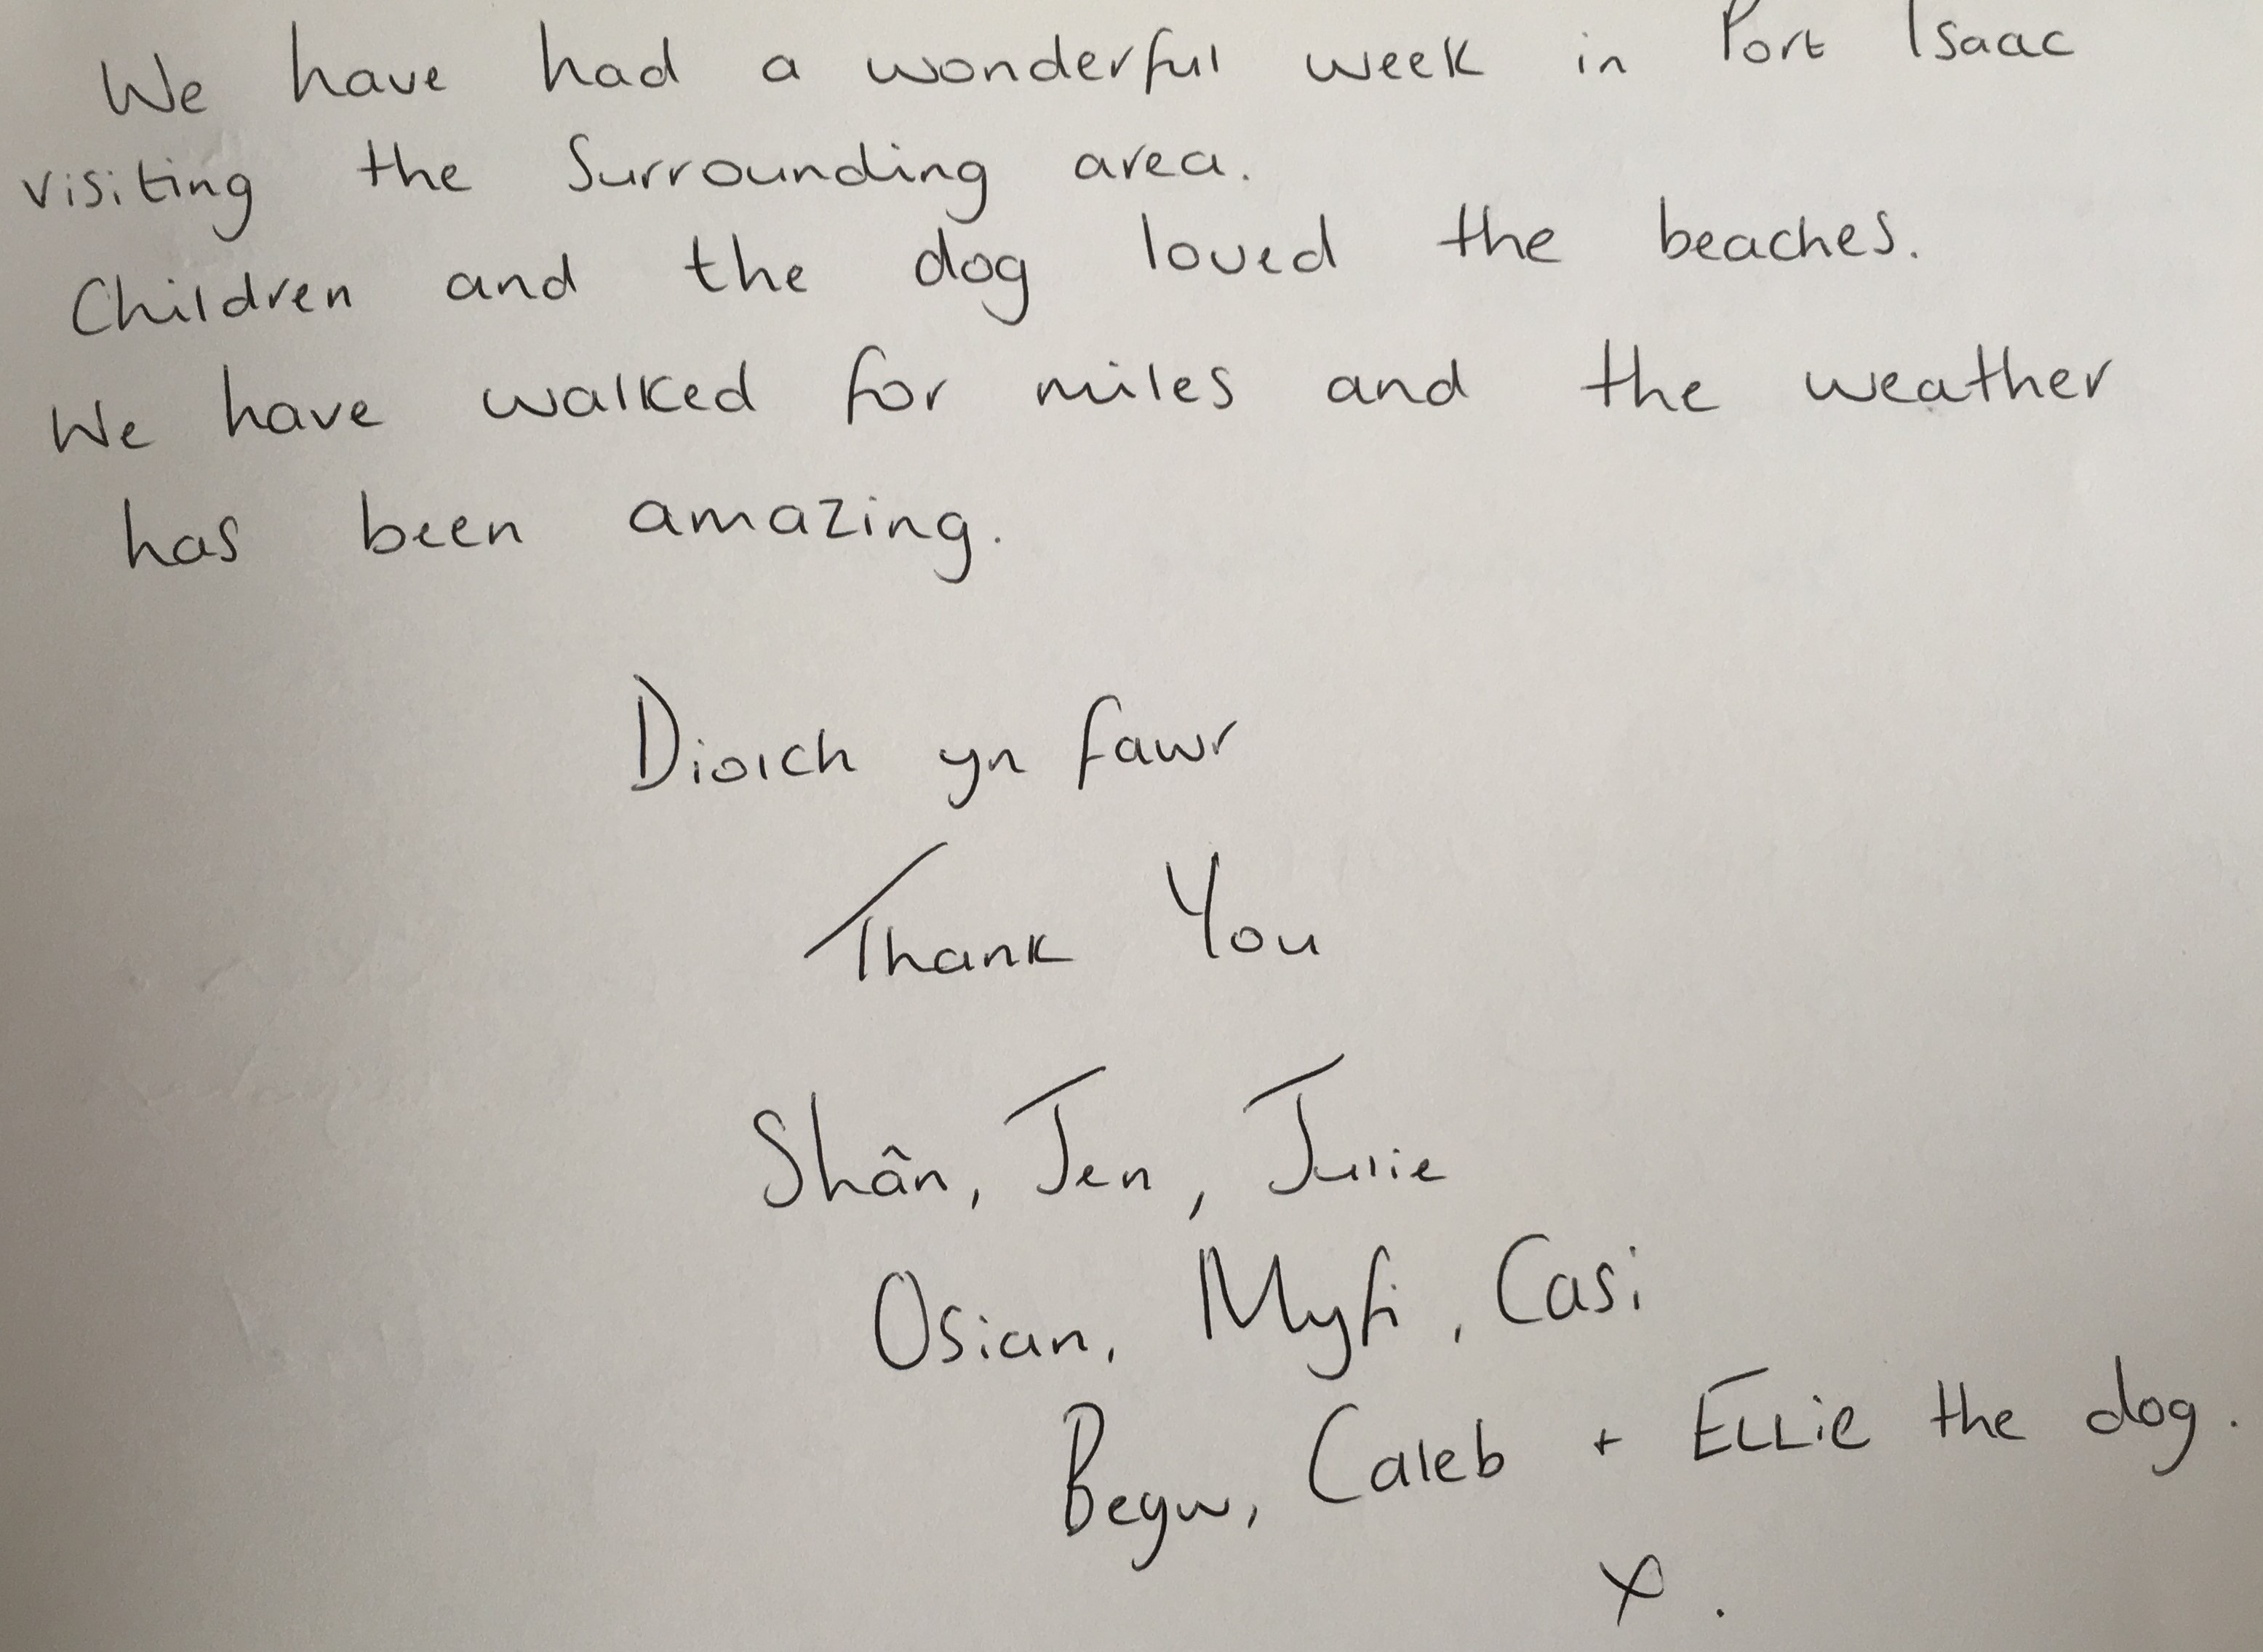 We have had a wonderful week in Port Isaac
visiting the Surrounding area.
Children and the dog loved the beaches.
We have walked for miles and the weather
has been amazing.
Diolch yn fawr
Thank You
Shân, Jen, Julie
Osian, Myfi, Casi
Begw, Caleb + ELLie the dog.
x.